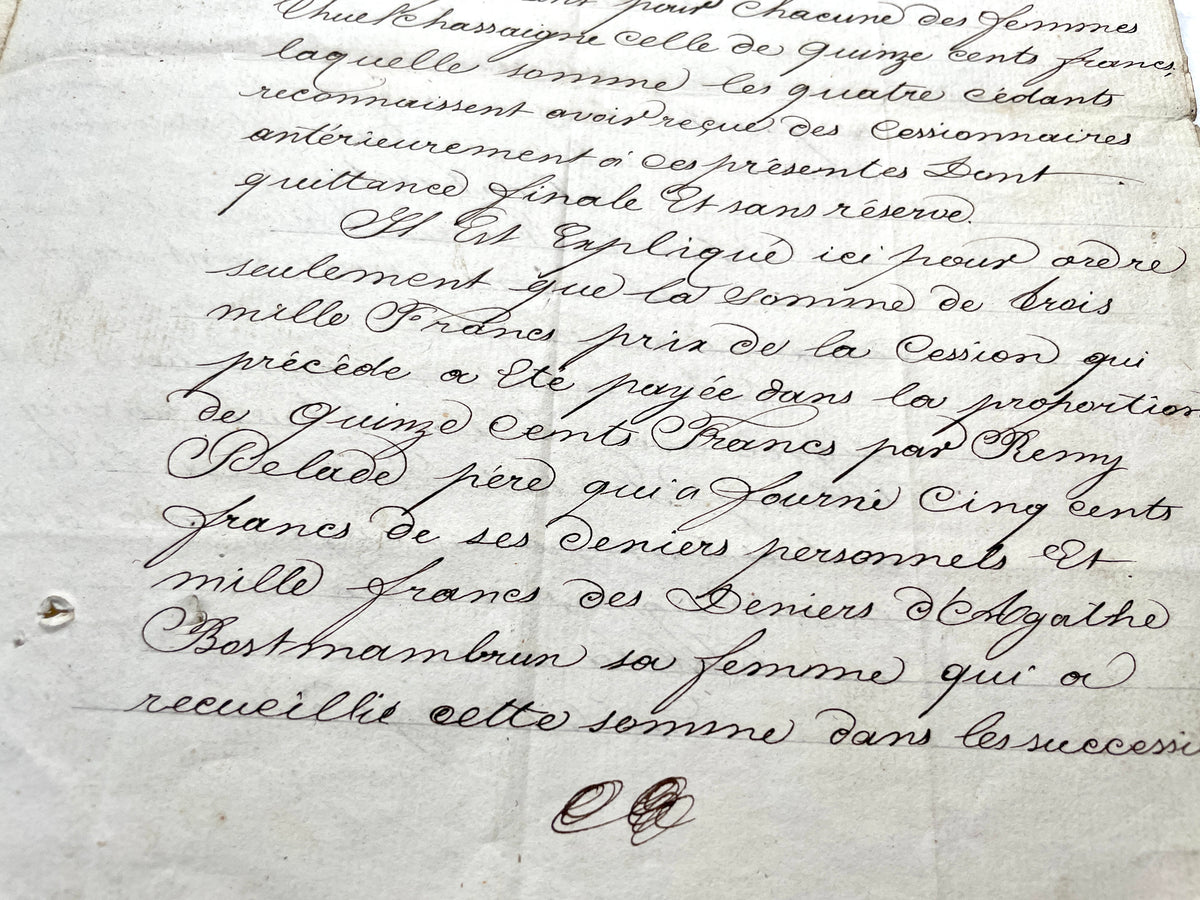 pour chacune des femmes
Chassaigne celle de quinze cents francs,
laquelle somme les quatre cédants
reconnaissent avoir reçue des cessionnaires
antérieurement à ces présentes Dont
quittance finale Et sans réserve.
Il Est Expliqué ici pour ordre
seulement que la somme de trois
mille Francs prix de la Cession qui
précède a Eté payée dans la proportion
de quinze cents Francs par Remy
Delade père qui a fourni Cinq cents
francs de ses deniers personnels Et
mille francs des Deniers d'Agathe
Bostmambrun sa femme qui a
recueillie cette somme dans les successi